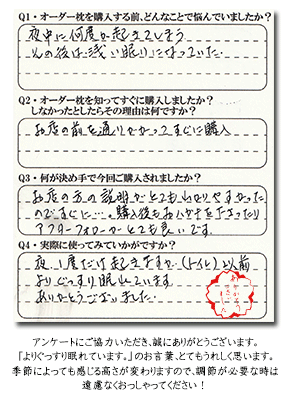 Q1・オーダー枕を購入する前、どんなことで悩んでいましたか？
夜中に何度か起きてしまう
その後は、浅い眠りになっていた。
Q2・オーダー枕を知ってすぐに購入しましたか？
しなかったとしたらその理由は何ですか？
お店の前を通りかかってすぐに購入
Q3・何が決め手で今回ご購入されましたか？
お店の方の説明がとてもわかりやすかった
のですぐに…。購入後もあたたか
アフターフォローがとても良いです。
Q4・実際に使ってみていかがですか？
夜、1度だけ起きますが（トイレ）以前
よりぐっすり眠れています
ありがとうございました。
アンケートにご協力いただき、誠にありがとうございます。
『よりぐっすり眠れています。』のお言葉、とてもうれしく思います。
季節によっても感じる高さが変わりますので、調節が必要な時は
遠慮なくおっしゃってください！